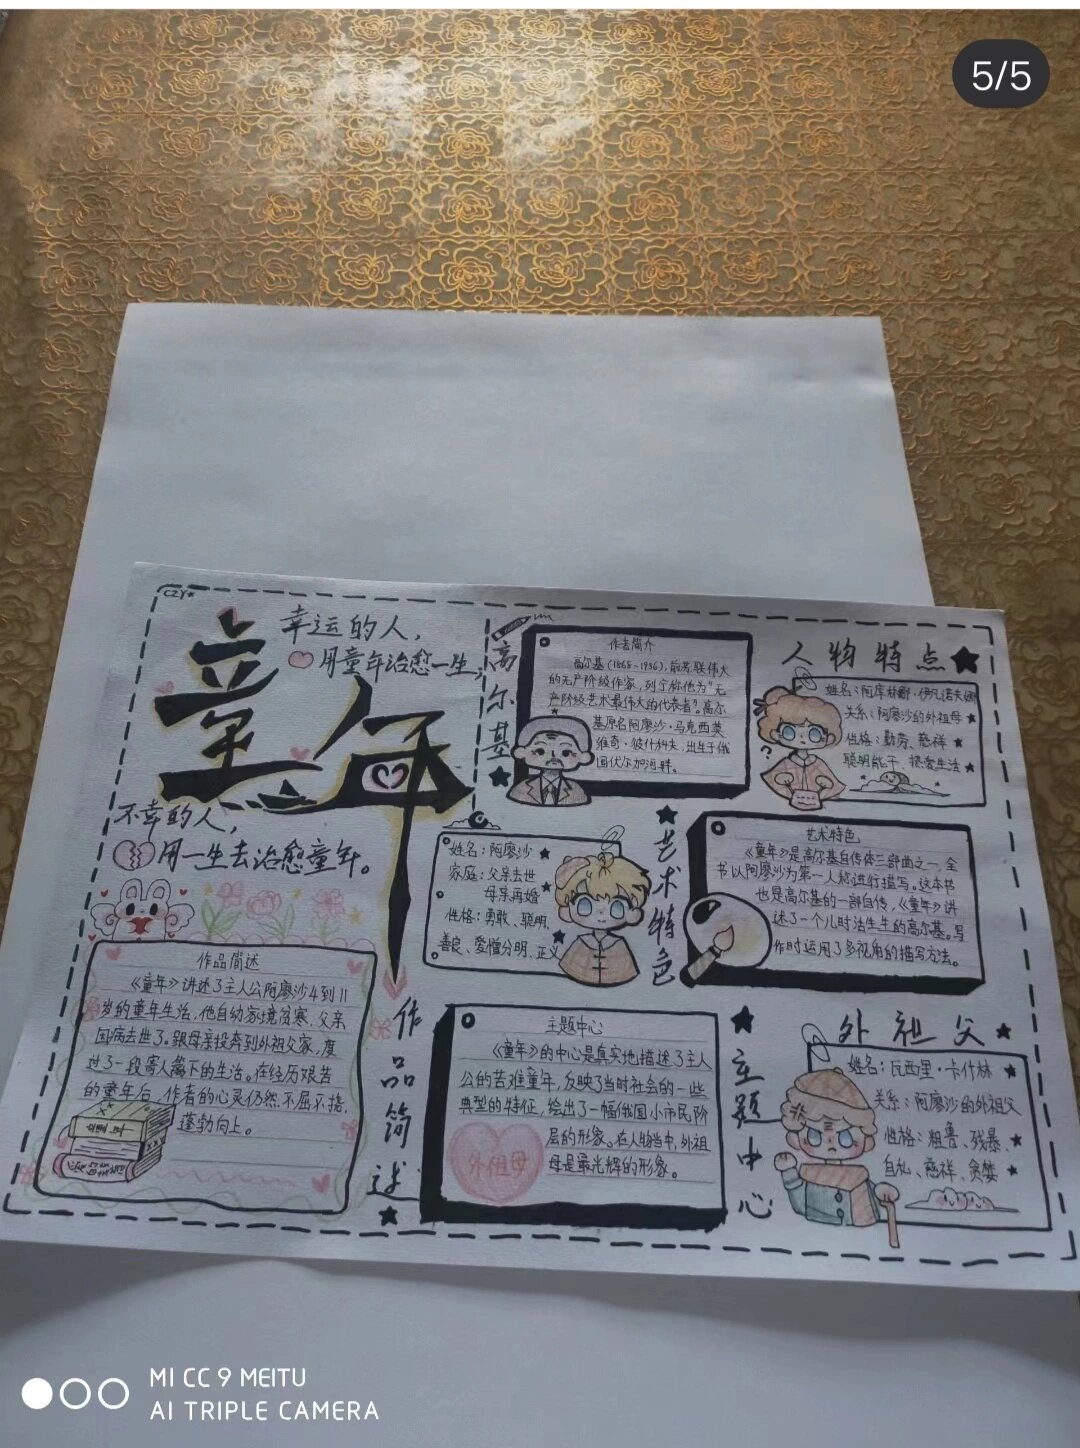 5/5
CZY
童年
幸运的人，
用童年治愈一生，
不幸的人，
用一生去治愈童年。
作品简述
《童年》讲述了主人公阿廖沙4到11
岁的童年生活，他自幼家境贫寒，父亲
因病去世了。跟母亲投奔到外祖父家，度
过了一段寄人篱下的生活。在经历艰苦
的童年后，作者的心灵仍然不屈不挠，
蓬勃向上。
作品简述
高尔基
作者简介
高尔基(1868-1936)，前苏联伟大
的无产阶级作家，列宁称他为"无
产阶级艺术最伟大的代表者"。高尔
基原名阿廖沙·马克西莫
维奇·彼什科夫，出生于俄
国伏尔加河畔。
姓名：阿廖沙
家庭：父亲去世
母亲再婚
性格：勇敢、聪明，
善良、爱憎分明、正义
主题中心
《童年》的中心是真实地描述了主人
公的苦难童年，反映了当时社会的一些
典型的特征，绘出了一幅俄国小市民阶
层的形象。在人物当中，外祖
母是最光辉的形象。
外祖母
主题中心
人物特点
姓名：阿库林娜·伊凡诺夫娜
关系：阿廖沙的外祖母
性格：勤劳、慈祥
聪明能干、热爱生活
艺术特色
艺术特色
《童年》是高尔基自传体三部曲之一，全
书以阿廖沙为第一人称进行描写。这本书
也是高尔基的一部自传，《童年》讲
述了一个儿时活生生的高尔基。写
作时运用了多视角的描写方法。
外祖父
姓名：瓦西里·卡什林
关系：阿廖沙的外祖父
性格：粗鲁、残暴、
自私、慈祥、贪婪
MI CC 9 MEITU
AI TRIPLE CAMERA